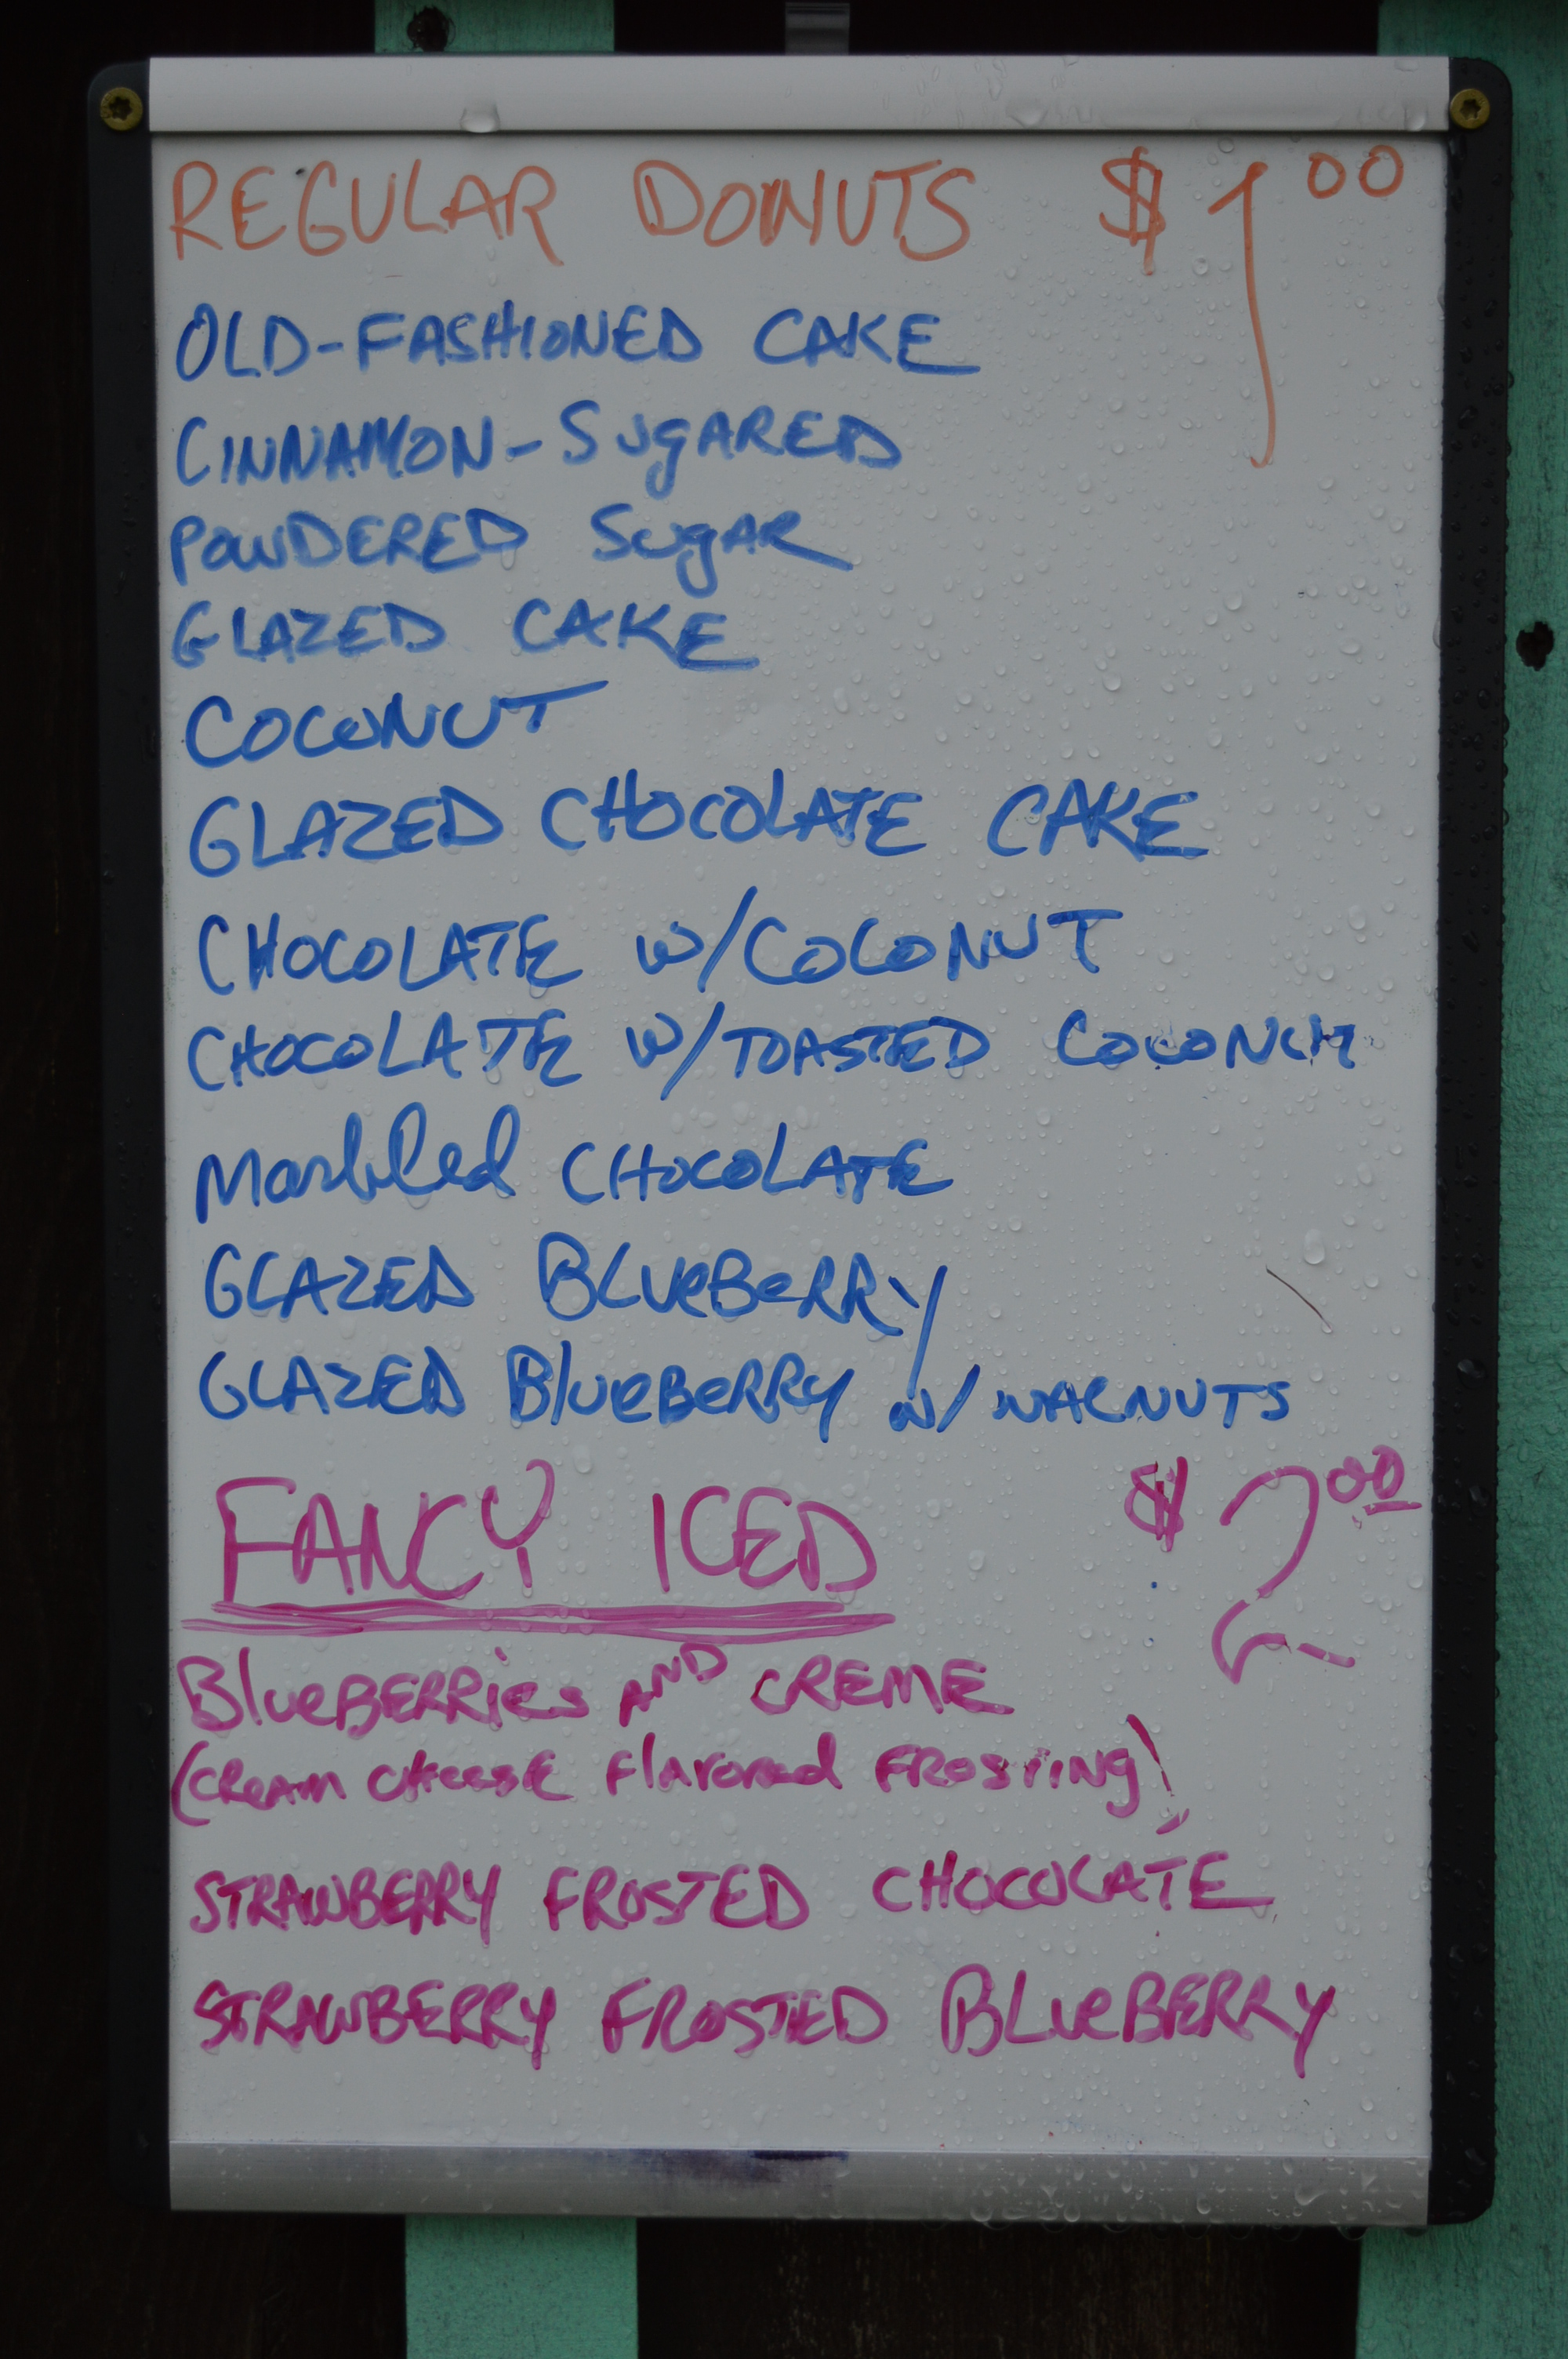 REGULAR DONUTS $1.00
OLD-FASHIONED CAKE
CINNAMON-SUgARED
POWDERED SugAR
GLAZED CAKE
COCONUT
GLAZED CHOCOLATE CAKE
CHOCOLATE W/COCONUT
CHOCOLATE W/TOASTED COCONUT
Marbled CHOCOLATE
GLAZED BLUeBeRRY
GLAZED BlueBeRRY W/ WALNUTS
FANCY ICED $2.00
BlueBERRies AND CREME
(CReam CHeese Flavored FROSTING)
STRAWBERRY FROSTED CHOCOLATE
STRAWBERRY FROSTED BLueBERRY